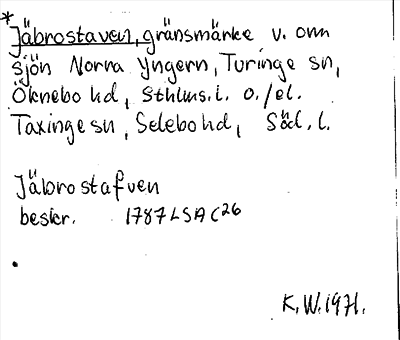 *Jäbrostaven, gränsmärke v. om
sjön Norra Yngern, Turinge sn,
Öknebo hd, Sthlms. l. o./el.
Taxinge sn, Selebo hd, Söd. l.
Jäbrostafven
beskr. 1787 LSA C26
K.W. 1971.